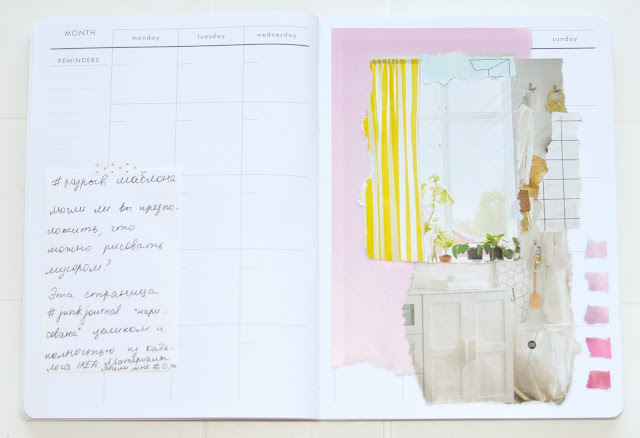 MONTH
monday
tuesday
wednesday
sunday
REMINDERS
#разрыв шаблона
могли ли вы предпо-
ложить, что
можно рисовать
мусором?
Эта страница
#junkjournal "нари-
сована" целиком и
полностью из ката-
лога IKEA. Материалы
мне